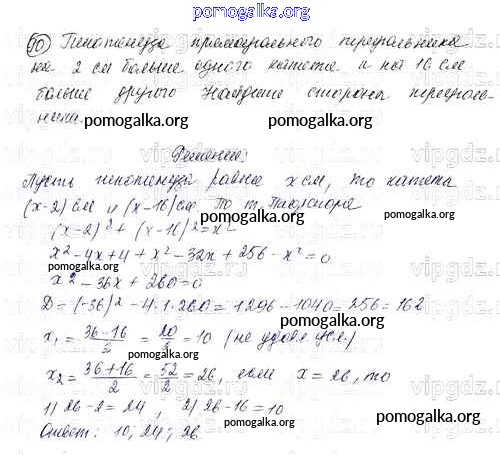 pomogalka.org
10) Гипотенуза прямоугольного треугольника
на 2 см больше одного катета и на 16 см
больше другого Найдите стороны треуголь-
ника.
pomogalka.org
pomogalka.org
Решение:
Пусть гипотенуза равна x см, то катета
(x-2) см и (x-16) см По т. Пифагора
pomogalka.org
(x-2)² + (x-16)² = x²
x² - 4x + 4 + x² - 32x + 256 - x² = 0
pomogalka.org
pomogalka.org
x² - 36x + 260 = 0
D = (-36)² - 4·1·260 = 1296 - 1040 = 256 = 16²
pomogalka.org
x₁ = 36-16/2 = 20/2 = 10 (не удовл. усл.)
x₂ = 36+16/2 = 52/2 = 26, если x = 26, то
1) 26-2 = 24, 2) 26-16 = 10
pomogalka.org
Ответ: 10; 24; 26
pomogalka.org